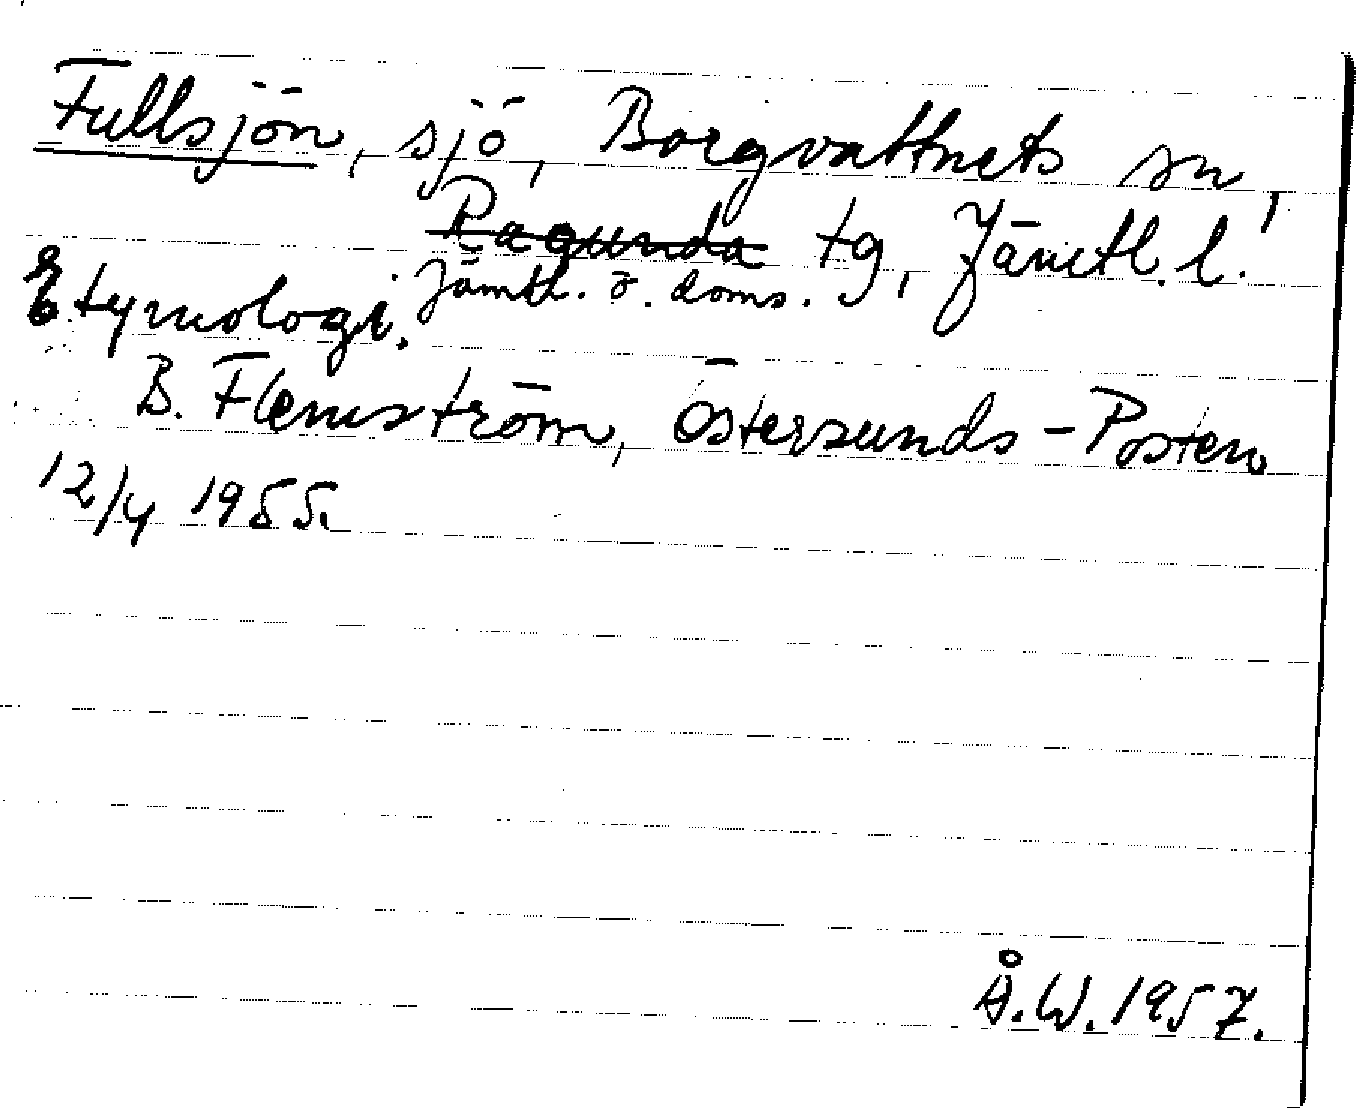 Fullsjön, sjö, Borgvattnets sn,
Ragunda tg, Jämtl. l.
Jämtl. ö. doms.
Etymologi.
B. Flemström, Östersunds-Posten
12/4 1955.
Å.W. 1957.